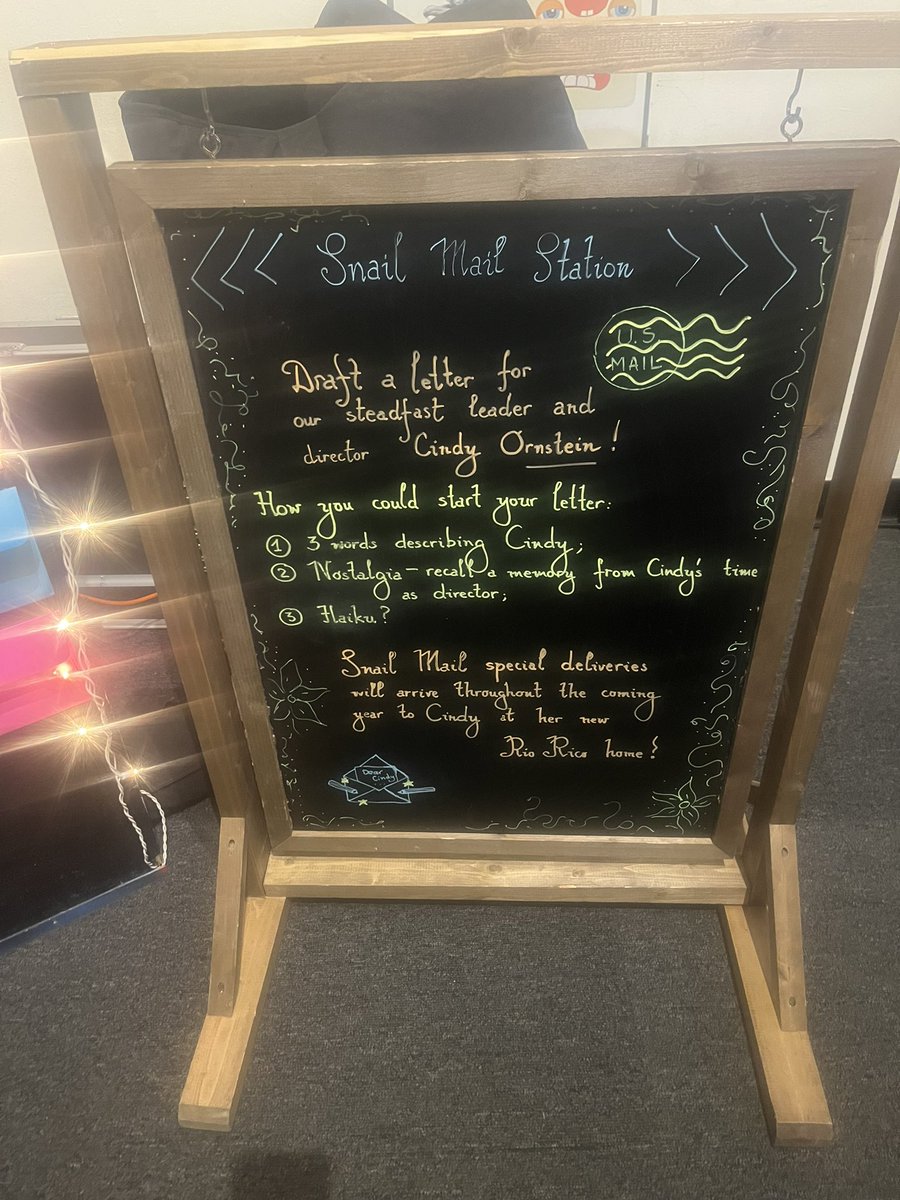 Snail Mail Station
U.S
MAIL
Draft a letter for
our steadfast leader and
director Cindy Ornstein!
How you could start your letter:
① 3 words describing Cindy;
② Nostalgia - recall a memory from Cindy's time
as director;
③ Haiku?
Snail Mail special deliveries
will arrive throughout the coming
year to Cindy at her new
Rio Rico home!
Dear
Cindy